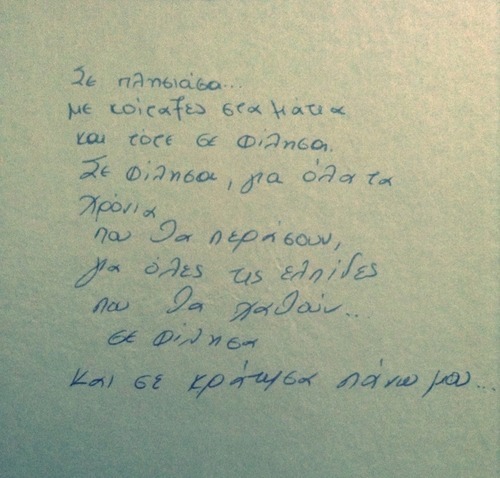 Σε πλησιάσα...
με κοίταξες στα μάτια
και τότε σε φίλησα.
Σε φίλησα, για όλα τα
χρόνια
που θα περάσουν,
για όλες τις ελπίδες
που θα χαθούν...
σε φίλησα
και σε κράτησα πάνω μου...